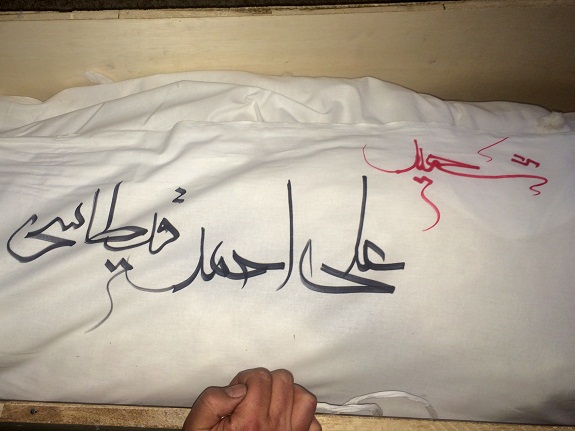 شهید
علی احمد قیطاسی